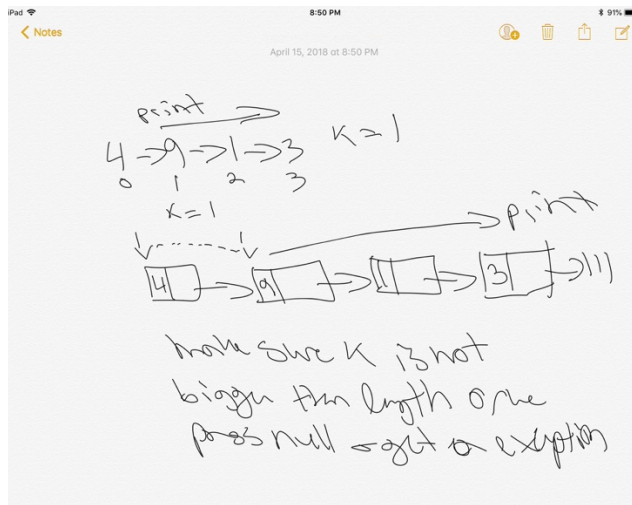 iPad 8:50 PM 91%
Notes
April 15, 2018 at 8:50 PM
print
4->9->1->3 K=1
0 1 2 3
K=1
print
4 9 1 3
make sure K is not
bigger than length or
null or get an exception